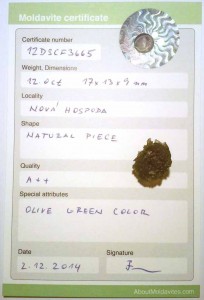 Moldavite certificate
Certificate number
12DSCF3665
Weight, Dimensions
12.0ct 17x13x9 mm
Locality
NOVÁ HOSPODA
Shape
NATURAL PIECE
Quality
A++
Special attributes
OLIVE GREEN COLOR
Date
Signature
2.12.2014
AboutMoldavites.com